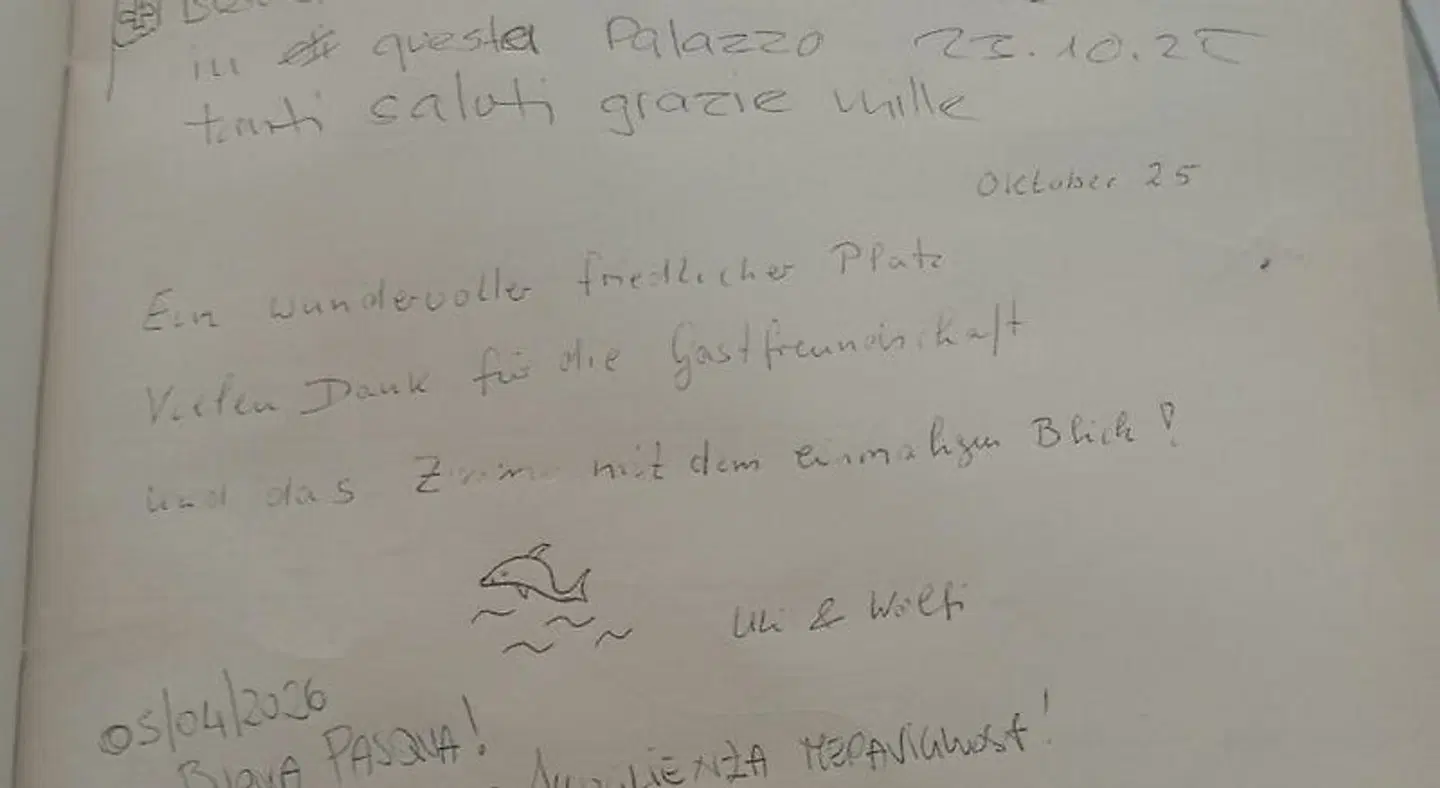 in questa Palazzo 23.10.25
tanti saluti grazie mille
Oktober 25
Ein wundervoller friedlicher Platz
Vielen Dank für die Gastfreundschaft
und das Zimmer mit dem einmaligen Blick!
Uli & Wolfi
05/04/2026
BUONA PASQUA!
MERAVIGLIOSA!